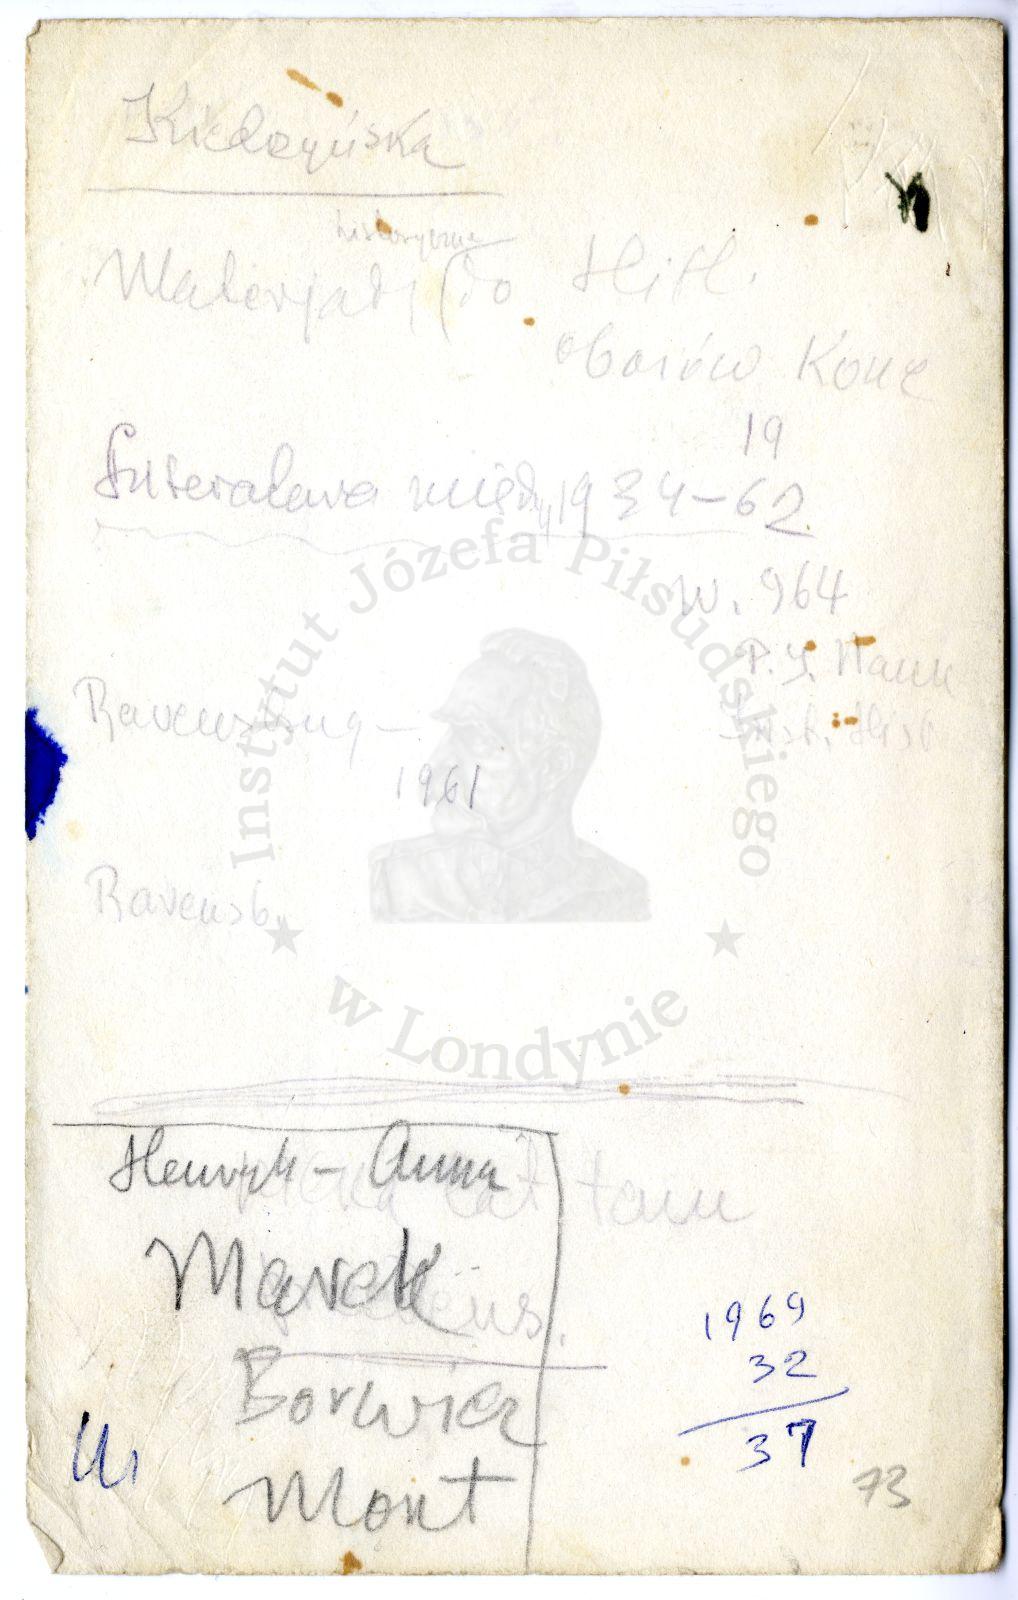 Kiedrzyńska
historyczne
Materjały (do Hitl.
obozów Konc
Literatura między 1934-62
19
W. 964
P. I. Nauk
Inst. Hist
Ravensbrug -
1961
Ravensb.
Henryk - Anna
tam
Marek
Borwicz
Mont
1969
32
37
73
Instytut Józefa Piłsudskiego
w Londynie